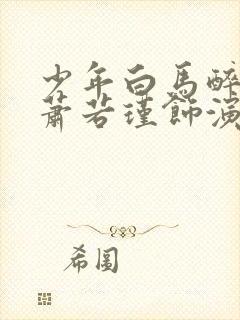 少年白馬醉
蕭若瑾飾演
希圖